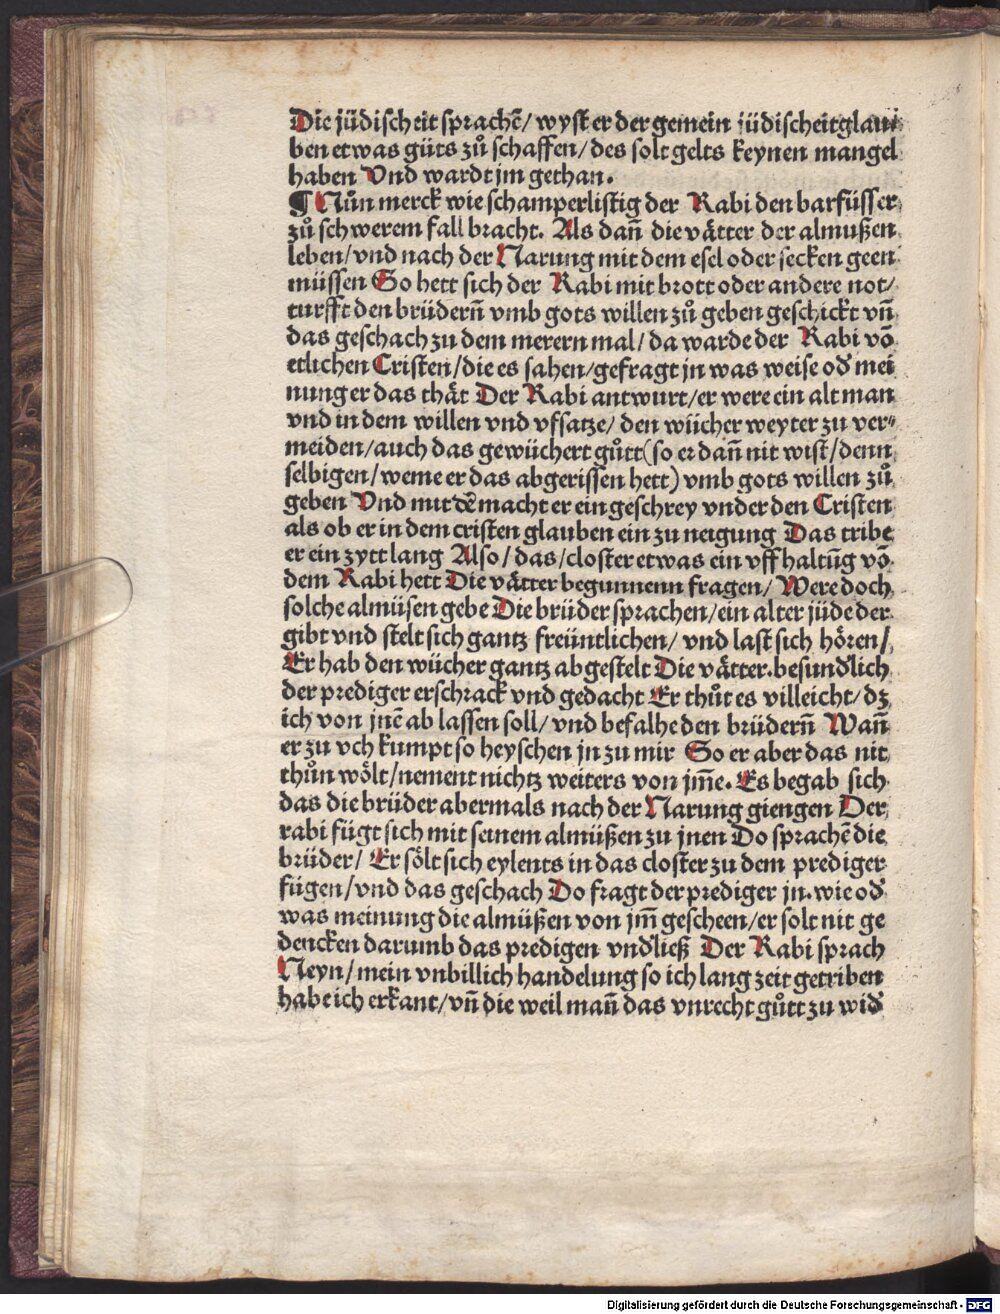 Die jüdischeit sprachē/ wyst er der gemein jüdischeit glau
ben etwas güts zů schaffen/ des solt gelts keynen mangel
haben Vnd wardt jm gethan.
¶ Nůn merck wie schamperlistig der Rabi den barfüsser
zů schwerem fall bracht. Als dañ die våtter der almußen
leben/ vnd nach der Narung mit dem esel oder secken geen
müssen So hett sich der Rabi mit brott oder andere not/
turfft den brüderñ vmb gots willen zů geben geschickt vñ
das geschach zu dem merern mal/ da warde der Rabi võ
etlichen Cristen/ die es sahen/ gefragt jn was weise oď mei
nung er das thät Der Rabi antwurt/ er were ein alt man
vnd in dem willen vnd vfsatze/ den wücher weyter zu ver⸗
meiden/ auch das gewüchert gůtt (so er dañ nit wist/ denn
selbigen/ weme er das abgerissen hett) vmb gots willen zů
geben Vnd mit dē macht er ein geschrey vnder den Cristen
als ob er in dem cristen glauben ein zu neigung Das tribe
er ein zytt lang Also/ das/ closter etwas ein vffhaltūg võ
dem Rabi hett Die våtter begunnenn fragen/ Were doch
solche almüsen gebe Die brüder sprachen/ ein alter jüde der
gibt vnd stelt sich gantz freüntlichen/ vnd last sich hören/
Er hab den wücher gantz abgestelt Die våtter. besunďlich
der prediger erschrack vnd gedacht Er thůt es villeicht/ dz
ich von jnē ab lassen soll/ vnd befalhe den brüderñ Wañ
er zu vch kumpt so heyschen jn zu mir So er aber das nit
thůn wölt/ nement nichtz weiters von jm̄e. Es begab sich
das die brüder abermals nach der Narung giengen Der
rabi fügt sich mit seinem almüßen zu jnen Do sprachē die
brüder/ Er sölt sich eylents in das closter zu dem prediger
fügen/ vnd das geschach Do fragt der prediger jn. wie oď
was meinung die almüßen von jm̄ gescheen/ er solt nit ge
dencken darumb das predigen vnďließ Der Rabi sprach
Neyn/ mein vnbillich handelung so ich lang zeit getriben
habe ich erkant/ vñ die weil mañ das vnrecht gůtt zu wiď
Digitalisierung gefördert durch die Deutsche Forschungsgemeinschaft - DFG